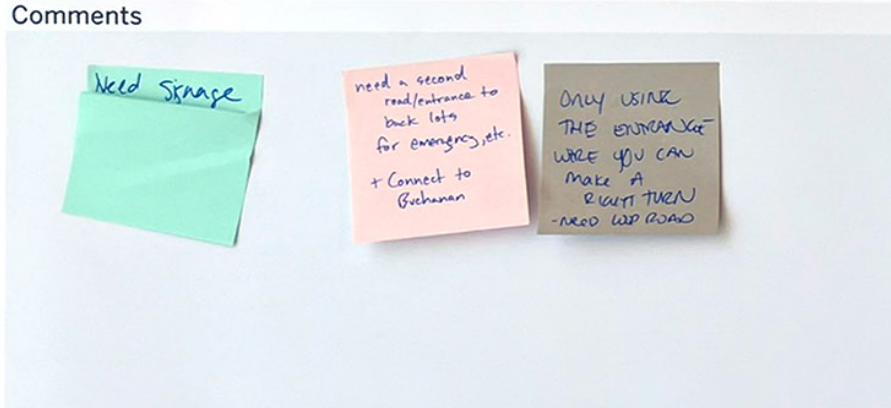 Comments
Need Signage
need a second
road/entrance to
back lots
for emergency, etc.
+ Connect to
Buchanan
ONLY USING
THE ENTRANCE
WERE YOU CAN
MAKE A
RIGHT TURN
-NEED LOOP ROAD